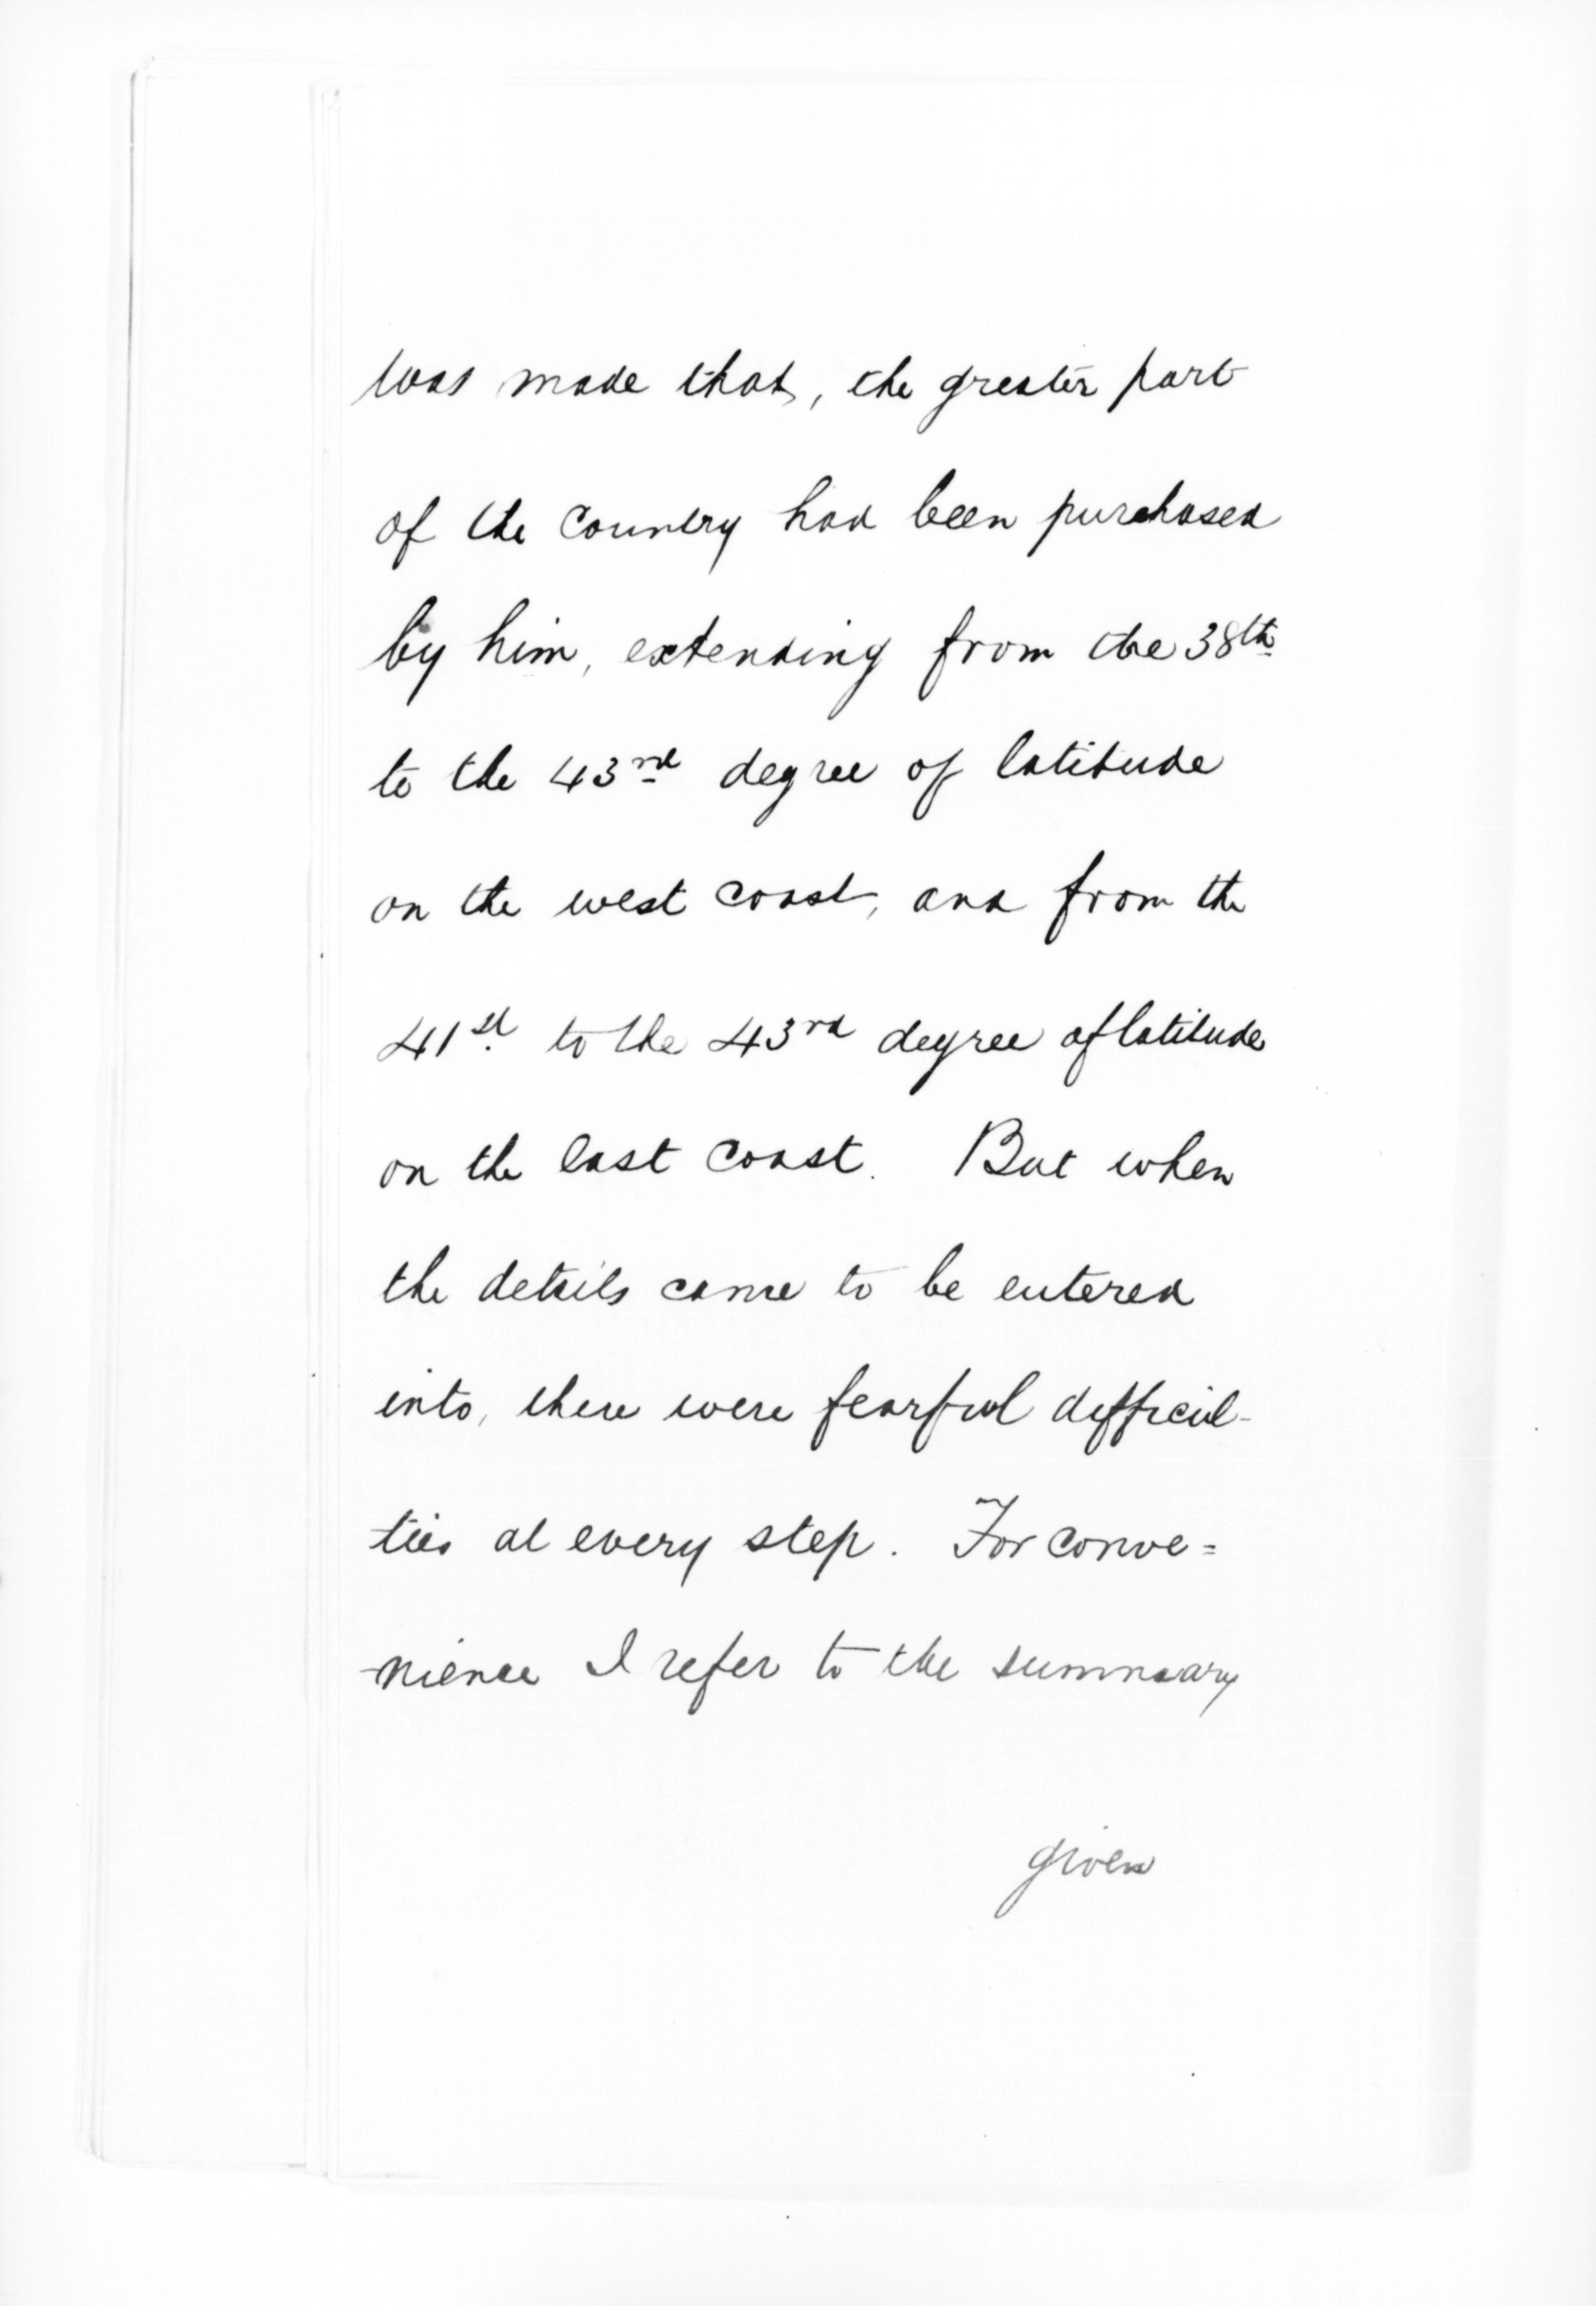 was made that, the greater part
of the Country had been purchased
by him, extending from the 38th
to the 43rd degree of latitude
on the west coast, and from the
41st to the 43rd degree of latitude
on the east coast. But when
the details came to be entered
into, there were fearful difficul-
ties at every step. For conve=
-nience I refer to the summary
given